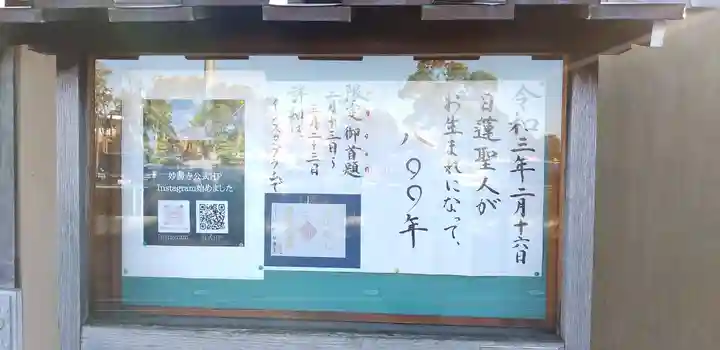 令和三年二月十六日
日蓮聖人が
お生まれになって、
八〇〇年
限定御首題
二月十三日ゟ
二月二十三日
詳細は、
インスタグラムで
妙勝寺公式HP
Instagram始めました
Instagram
公式HP